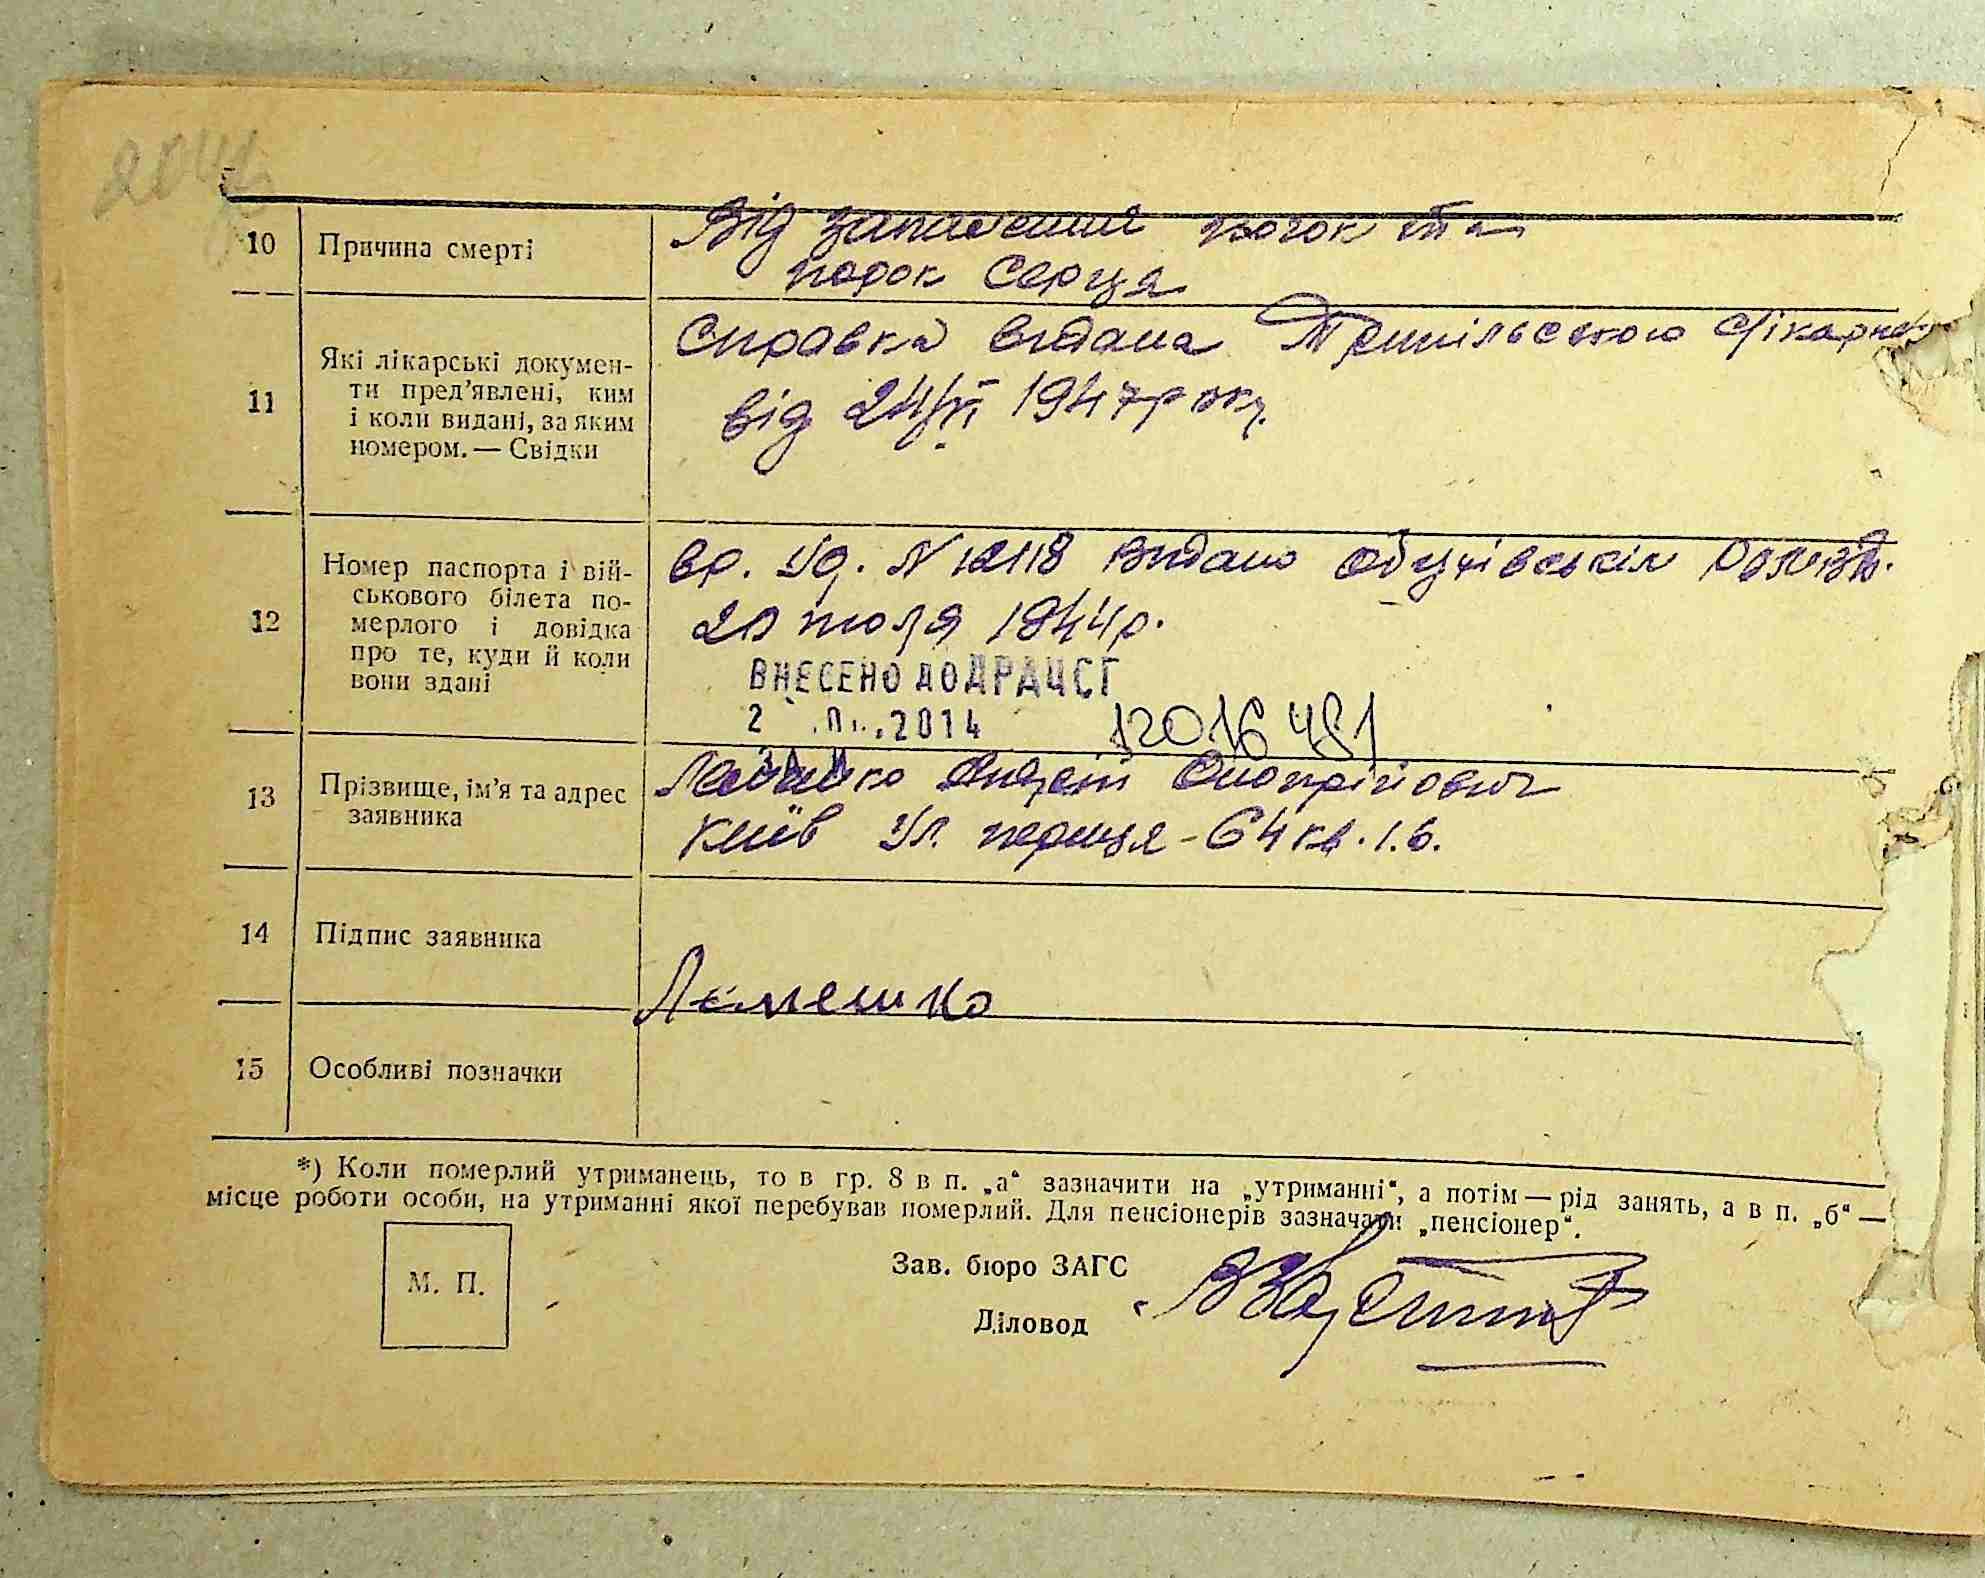 10 Причина смерті
Від запалення почок та
порок серця
11 Які лікарські докумен-
ти пред’явлені, ким
і коли видані, за яким
номером. — Свідки
Справка видана Трипільською лікарнею
від 24/VI 1947 року.
12 Номер паспорта і вій-
ськового білета по-
мерлого і довідка
про те, куди й коли
вони здані
Вр. уд. N 12118 видано Обухівськім
20 июля 1944 р.
ВНЕСЕНО ДО ДРАЦСГ
2 2014 12016481
13 Прізвище, ім’я та адрес
заявника
Андрей Онопрійович
Київ Ул. 64 кв. 1.б.
14 Підпис заявника
Лемешко
15 Особливі позначки
*) Коли померлий утриманець, то в гр. 8 в п. „а“ зазначити на „утриманні“, а потім — рід занять, а в п. „б“ —
місце роботи особи, на утриманні якої перебував померлий. Для пенсіонерів зазначати „пенсіонер“.
М. П.
Зав. бюро ЗАГС
Діловод